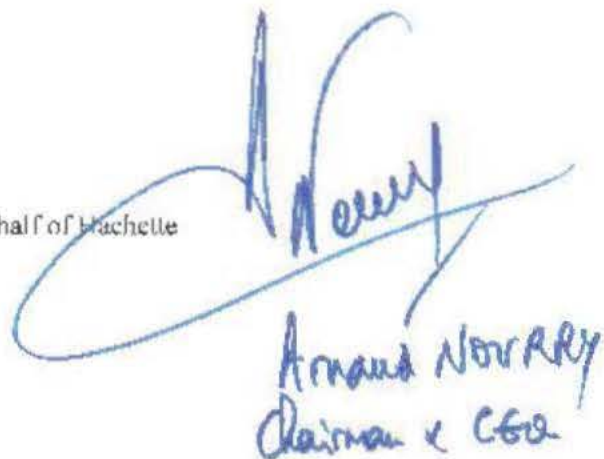 half of Hachette
Arnaud NOURRY
Chairman & CEO